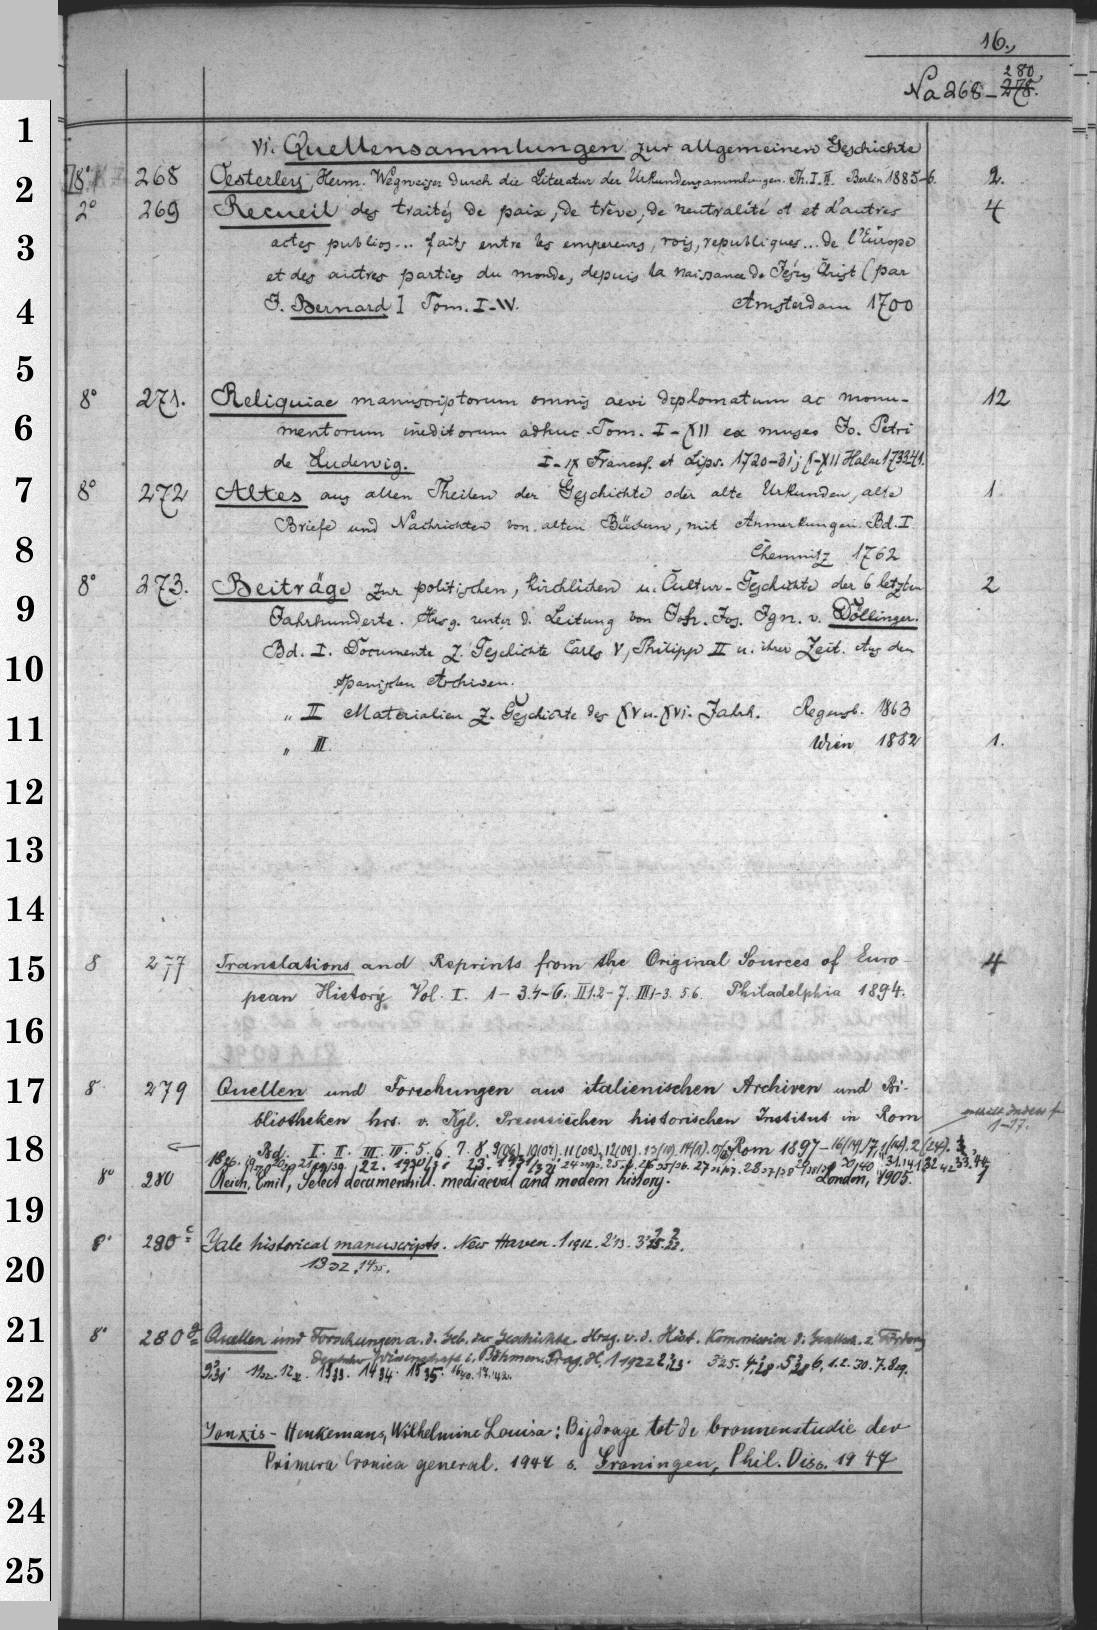 16.
Na 268-278. 280.
1
VI. Quellensammlungen zur allgemeinen Geschichte
2
8° 268 Oesterley Herm. Wegweiser durch die Literatur der Urkundensammlungen. Th. I. II. Berlin 1885-6. 2.
2° 269 Recueil des traités de paix, de trêve, de neutralité et d'autres 4
3
actes publics... faits entre les empereurs, rois, republiques... de l'Europe
et des autres parties du monde, depuis la naissance de Jésus Christ (par
4
J. Bernard] Tom. I-IV. Amsterdam 1700
5
8° 271. Reliquiae manuscriptorum omnis aevi diplomatum ac monu- 12
6
mentorum ineditorum adhuc. Tom. I-XII ex museo Jo. Petri
de Ludewig. I-IX Francof. et Lips. 1720-31; X-XII Halae 1733-41.
7
8° 272 Altes aus allen Theilen der Geschichte oder alte Urkunden, alte 1
Briefe und Nachrichten von alten Büchern, mit Anmerkungen. Bd. I
8
Chemnitz 1762
8° 273. Beiträge zur politischen, kirchlichen u. Cultur-Geschichte der 6 letzten 2
9
Jahrhunderte. Hrsg. unter d. Leitung von Joh. Jos. Ign. v. Döllinger.
Bd. I. Documente z. Geschichte Carls V, Philipp II u. ihrer Zeit. Aus den
10
spanischen Archiven.
„ II Materialien z. Geschichte des XV u. XVI. Jahrh. Regensb. 1863
11
„ III. Wien 1882 1.
12
13
14
15
8 277 Translations and Reprints from the Original Sources of Euro- 4
pean History Vol. I. 1-3.4-6. II 1.2-7. III 1-3. 5.6. Philadelphia 1894.
16
17
8° 279 Quellen und Forschungen aus italienischen Archiven und Bi-
bliotheken hrs. v. Kgl. Preussischen historischen Institut in Rom
1-17.
18
Bd. I. II. III. IV. 5. 6. 7. 8. 9(06), 10(07), 11(08), 12(09). Rom 1897-
22. 1930/31 23. 1931/32
8° 280 Reich, Emil, Select documents ill. mediaeval and modern history. London, 1905. 1
19
8° 280c Yale historical manuscripts. New Haven. 1 1912. 2 13.
20
13 32. 14 35.
21
8° 280 Quellen und Forschungen a. d. Geb. der Geschichte. Hrsg. v. d. Hist. Kommission d. Gesellsch. z. Förderg
deutscher Wissenschaft i. Böhmen. Prag. 1 1922
22
13 33. 14 34. 15 35.
23
Jonxis-Henkemans, Wilhelmine Louisa: Bijdrage tot de bronnenstudie der
Primera Cronica general. 1947 s. Groningen, Phil. Diss. 1947
24
25